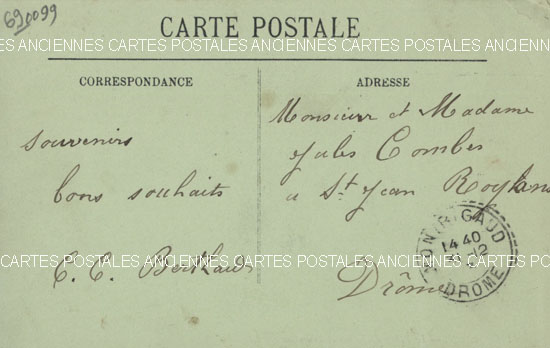 690099
CARTE POSTALE
ANCIENNES CARTES POSTALES ANCIENNES CARTES POSTALES ANCIENNES CARTES POSTALES ANCIENNES
CORRESPONDANCE
ADRESSE
Souvenirs
bons souhaits
E. E.
Monsieur et Madame
Jules Combes
a St Jean Royans
Drôme
MONTRIGAUD
14 40
12
DROME
CARTES POSTALES ANCIENNES CARTES POSTALES ANCIENNES CARTES POSTALES ANCIENNES CARTES POSTALES